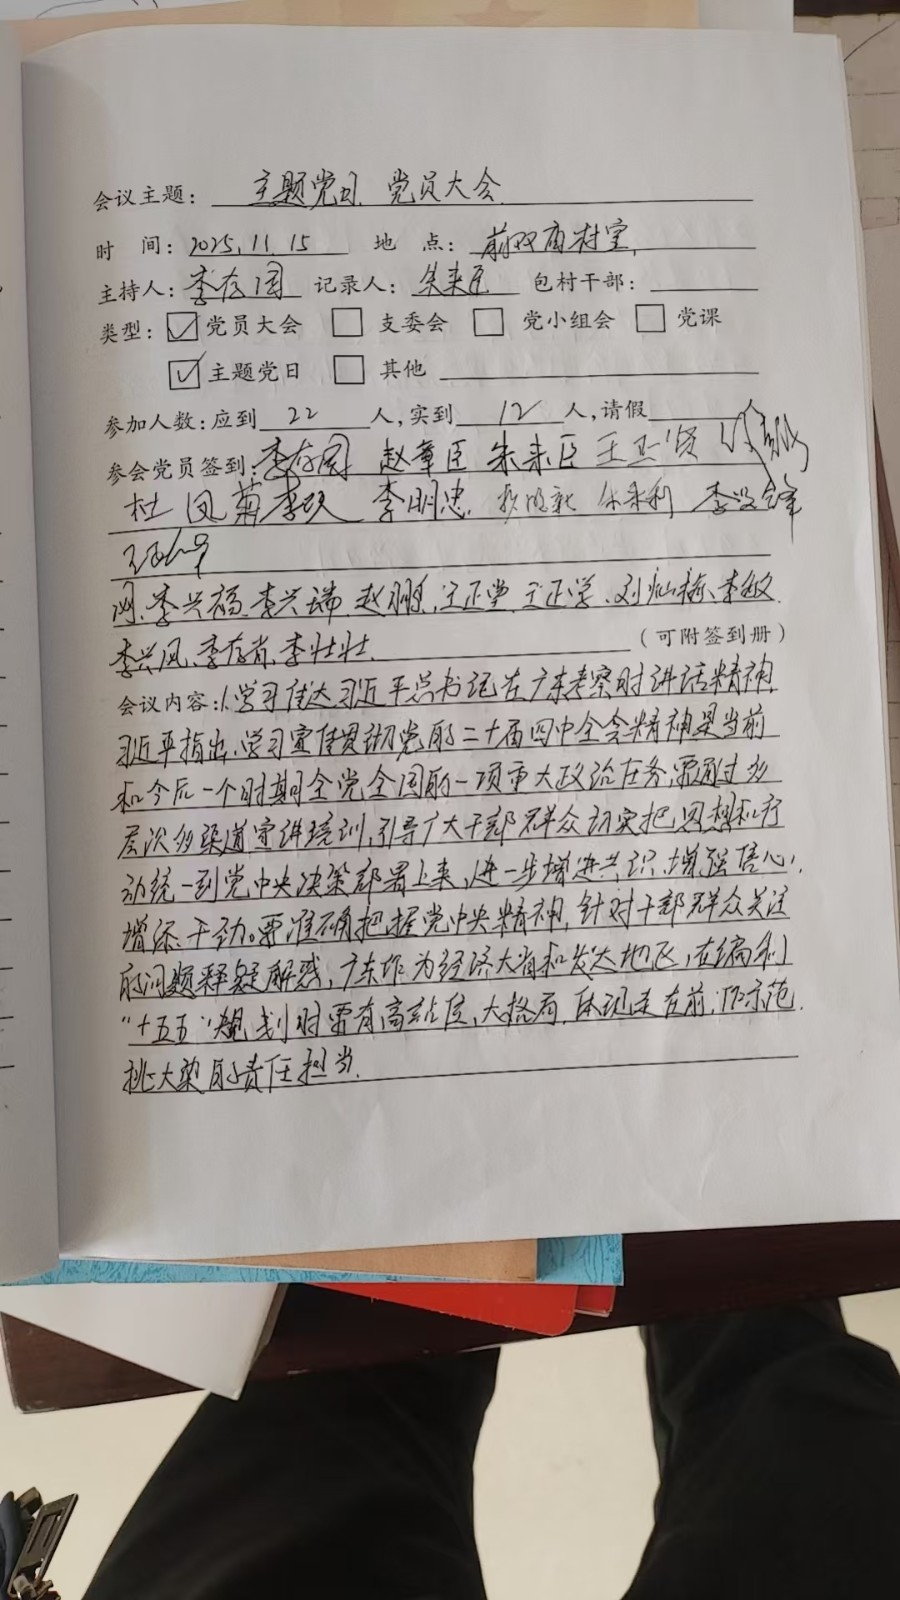 会议主题: 主题党日、党员大会
时 间: 2025.11.15 地 点: 前双庙村室
主持人: 李存国 记录人: 朱来臣 包村干部:
类型: ☑党员大会 □ 支委会 □ 党小组会 □ 党课
☑主题党日 □ 其他
参加人数: 应到 22 人, 实到 12 人, 请假 人
参会党员签到: 李存国 赵章臣 朱来臣
杜凤菊 李明忠 朱来利
李兴福、李兴瑞、赵刚、王正学、李敏
李兴凤、李存肖、李壮壮、 (可附签到册)
会议内容: 1.学习传达习近平总书记在广东考察时讲话精神
习近平指出,学习宣传贯彻党的二十届四中全会精神是当前
和今后一个时期全党全国的一项重大政治任务,要通过多
层次多渠道宣讲培训,引导广大干部群众切实把思想和行
动统一到党中央决策部署上来,进一步增进共识、增强信心、
增添干劲。要准确把握党中央精神,针对干部群众关注
的问题释疑解惑,广东作为经济大省和发达地区,在编制
“十五五”规划时要有高站位、大格局,体现走在前、作示范、
挑大梁的责任担当.